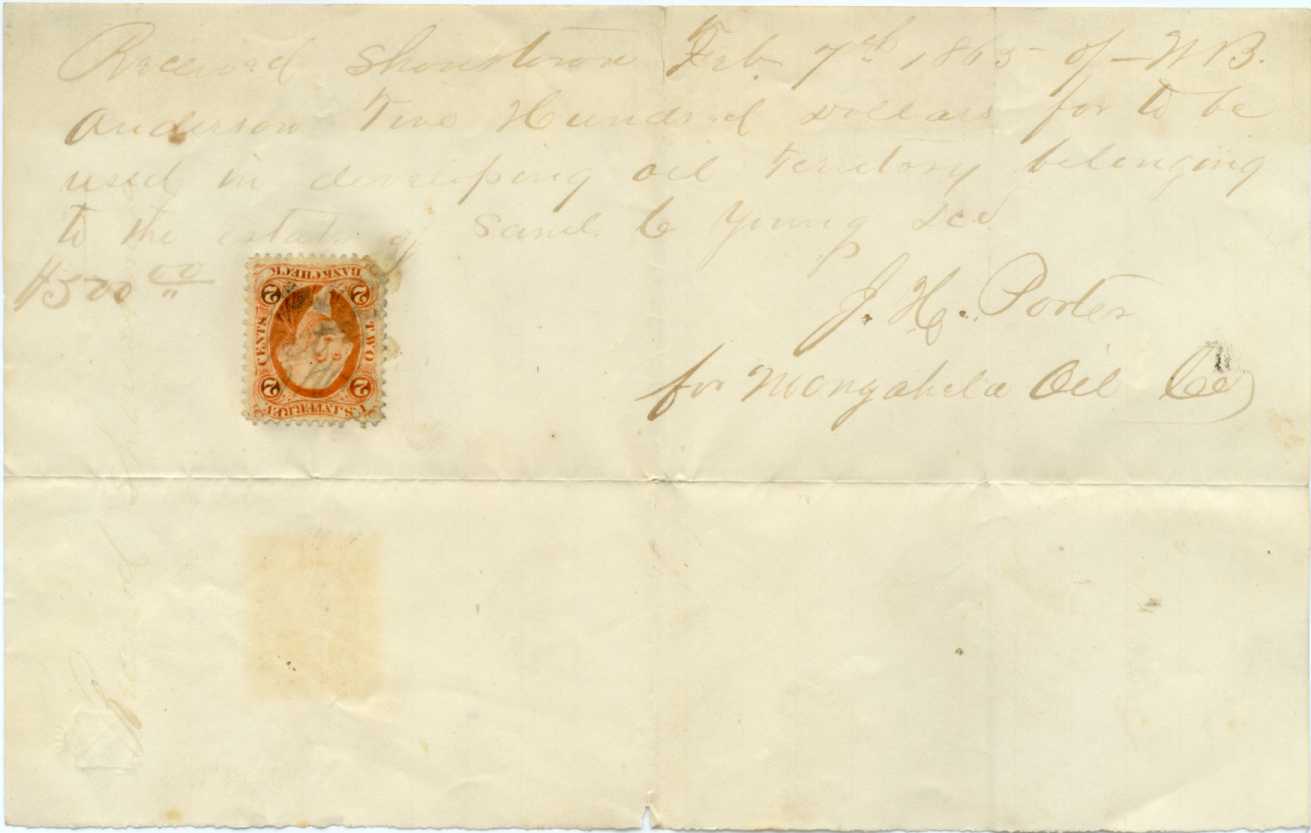 Received Shoustown Feb. 7th 1865 of W B.
Anderson Five Hundred Dollars for to be
used in developing oil Territory belonging
to the estate of Saml. C Young Dcd
$500 00
J. H. Porter
for Mongahela Oil Co
BANK CHECK
2 2
CENTS TWO
2 2
U.S. INTER. REV.